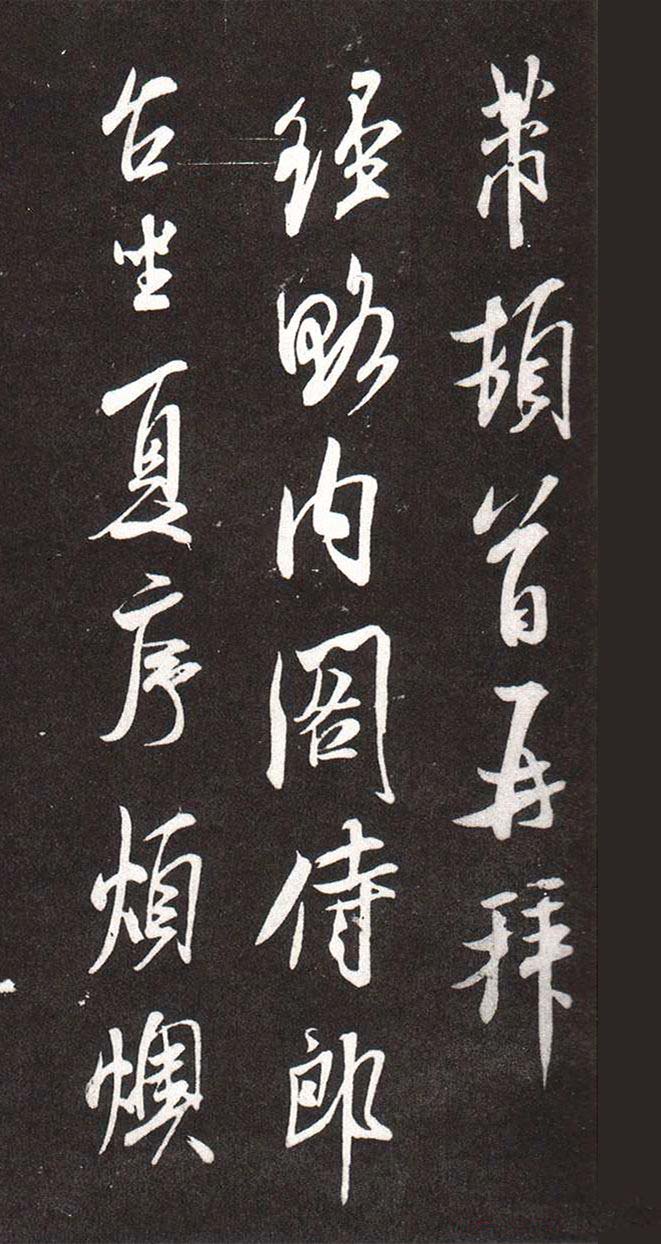 芾頓首再拜
經略內閣侍郎
台坐夏序煩燠